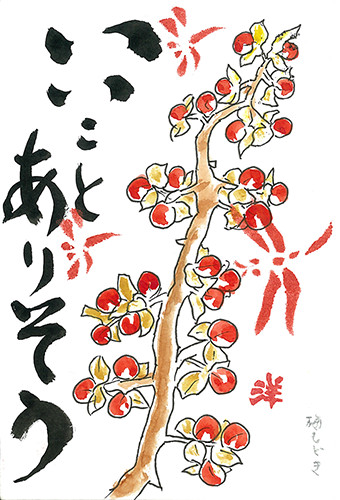 いいこと
ありそう
洋
梅もどき